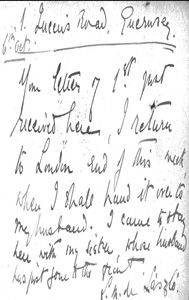 1. Queen's Road, Guernsey.
6th Oct.
Your letter of 1st just
received here, I return
to London end of this week,
when I shall hand it over to
my husband. I came to stay
here with my sister, whose husband
has just gone to the front
L. M. de Laszlo.